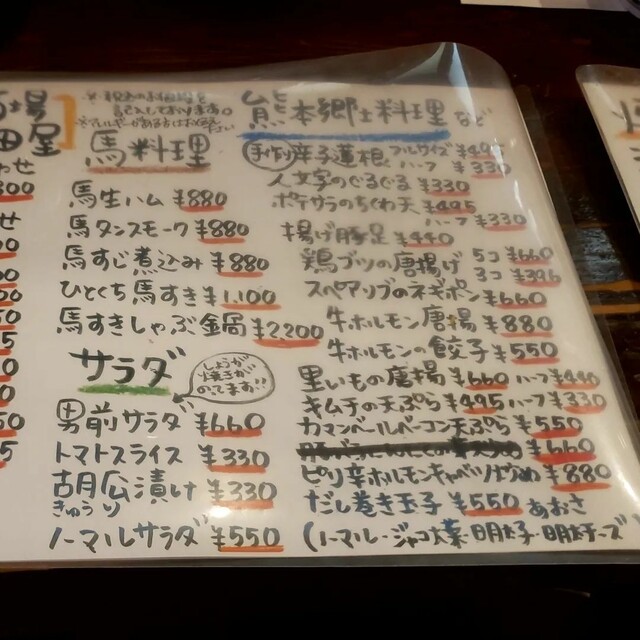 馬料理
馬生ハム ¥880
馬タンスモーク ¥880
馬すじ煮込み ¥880
ひとくち馬すき ¥1,100
馬すきしゃぶ鍋 ¥2200
サラダ
のってます!!
男前サラダ ¥660
トマトスライス ¥330
胡瓜漬け ¥330
きゅうり
ノーマルサラダ ¥550
熊本郷土料理 など
手作り 辛子蓮根 フルサイズ ¥495
ハーフ ¥330
人文字のぐるぐる ¥330
ポテサラのちくわ天 ¥495
ハーフ ¥330
揚げ豚足 ¥440
鶏ゴツの唐揚げ 5コ ¥660
3コ ¥396
スペアリブのネギポン ¥660
牛ホルモン唐揚 ¥880
牛ホルモンの餃子 ¥550
里いもの唐揚 ¥660 ハーフ ¥440
キムチの天ぷら ¥495 ハーフ ¥330
カマンベールベーコン天ぷら ¥550
¥660
ピリ辛ホルモンキャベツ炒め ¥880
だし巻き玉子 ¥550 あおさ
(ノーマル・ジャコ大葉・明太子・明太チーズ